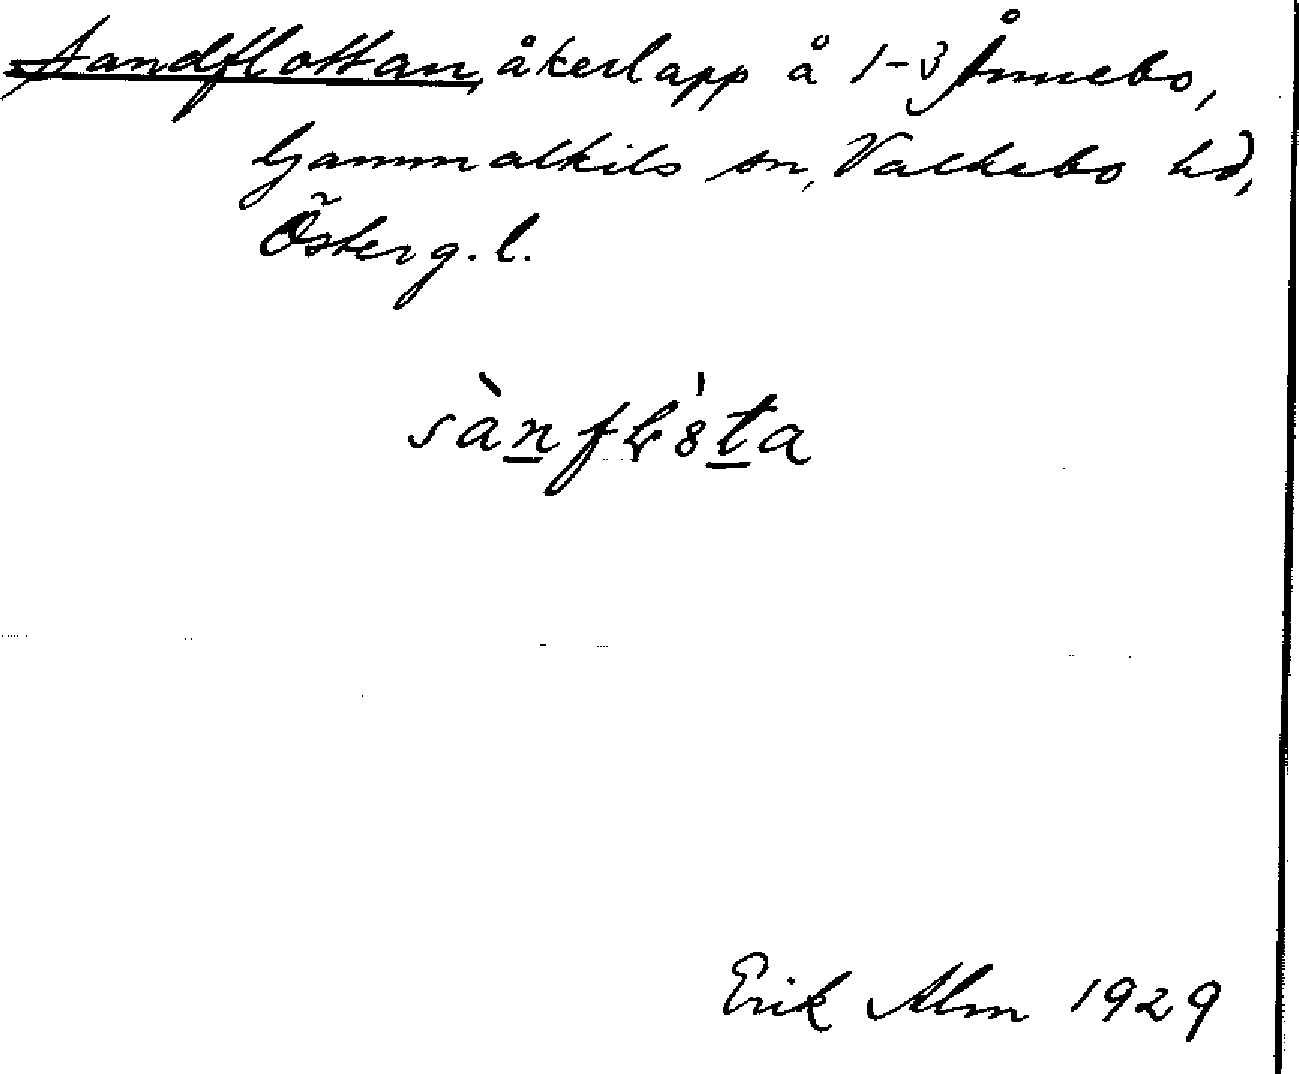 Sandflottan, åkerlapp å 1-3 Ånnebo,
Gammalkils sn, Valkebo hd,
Österg.l.
sànfl8ta
Erik Alm 1929